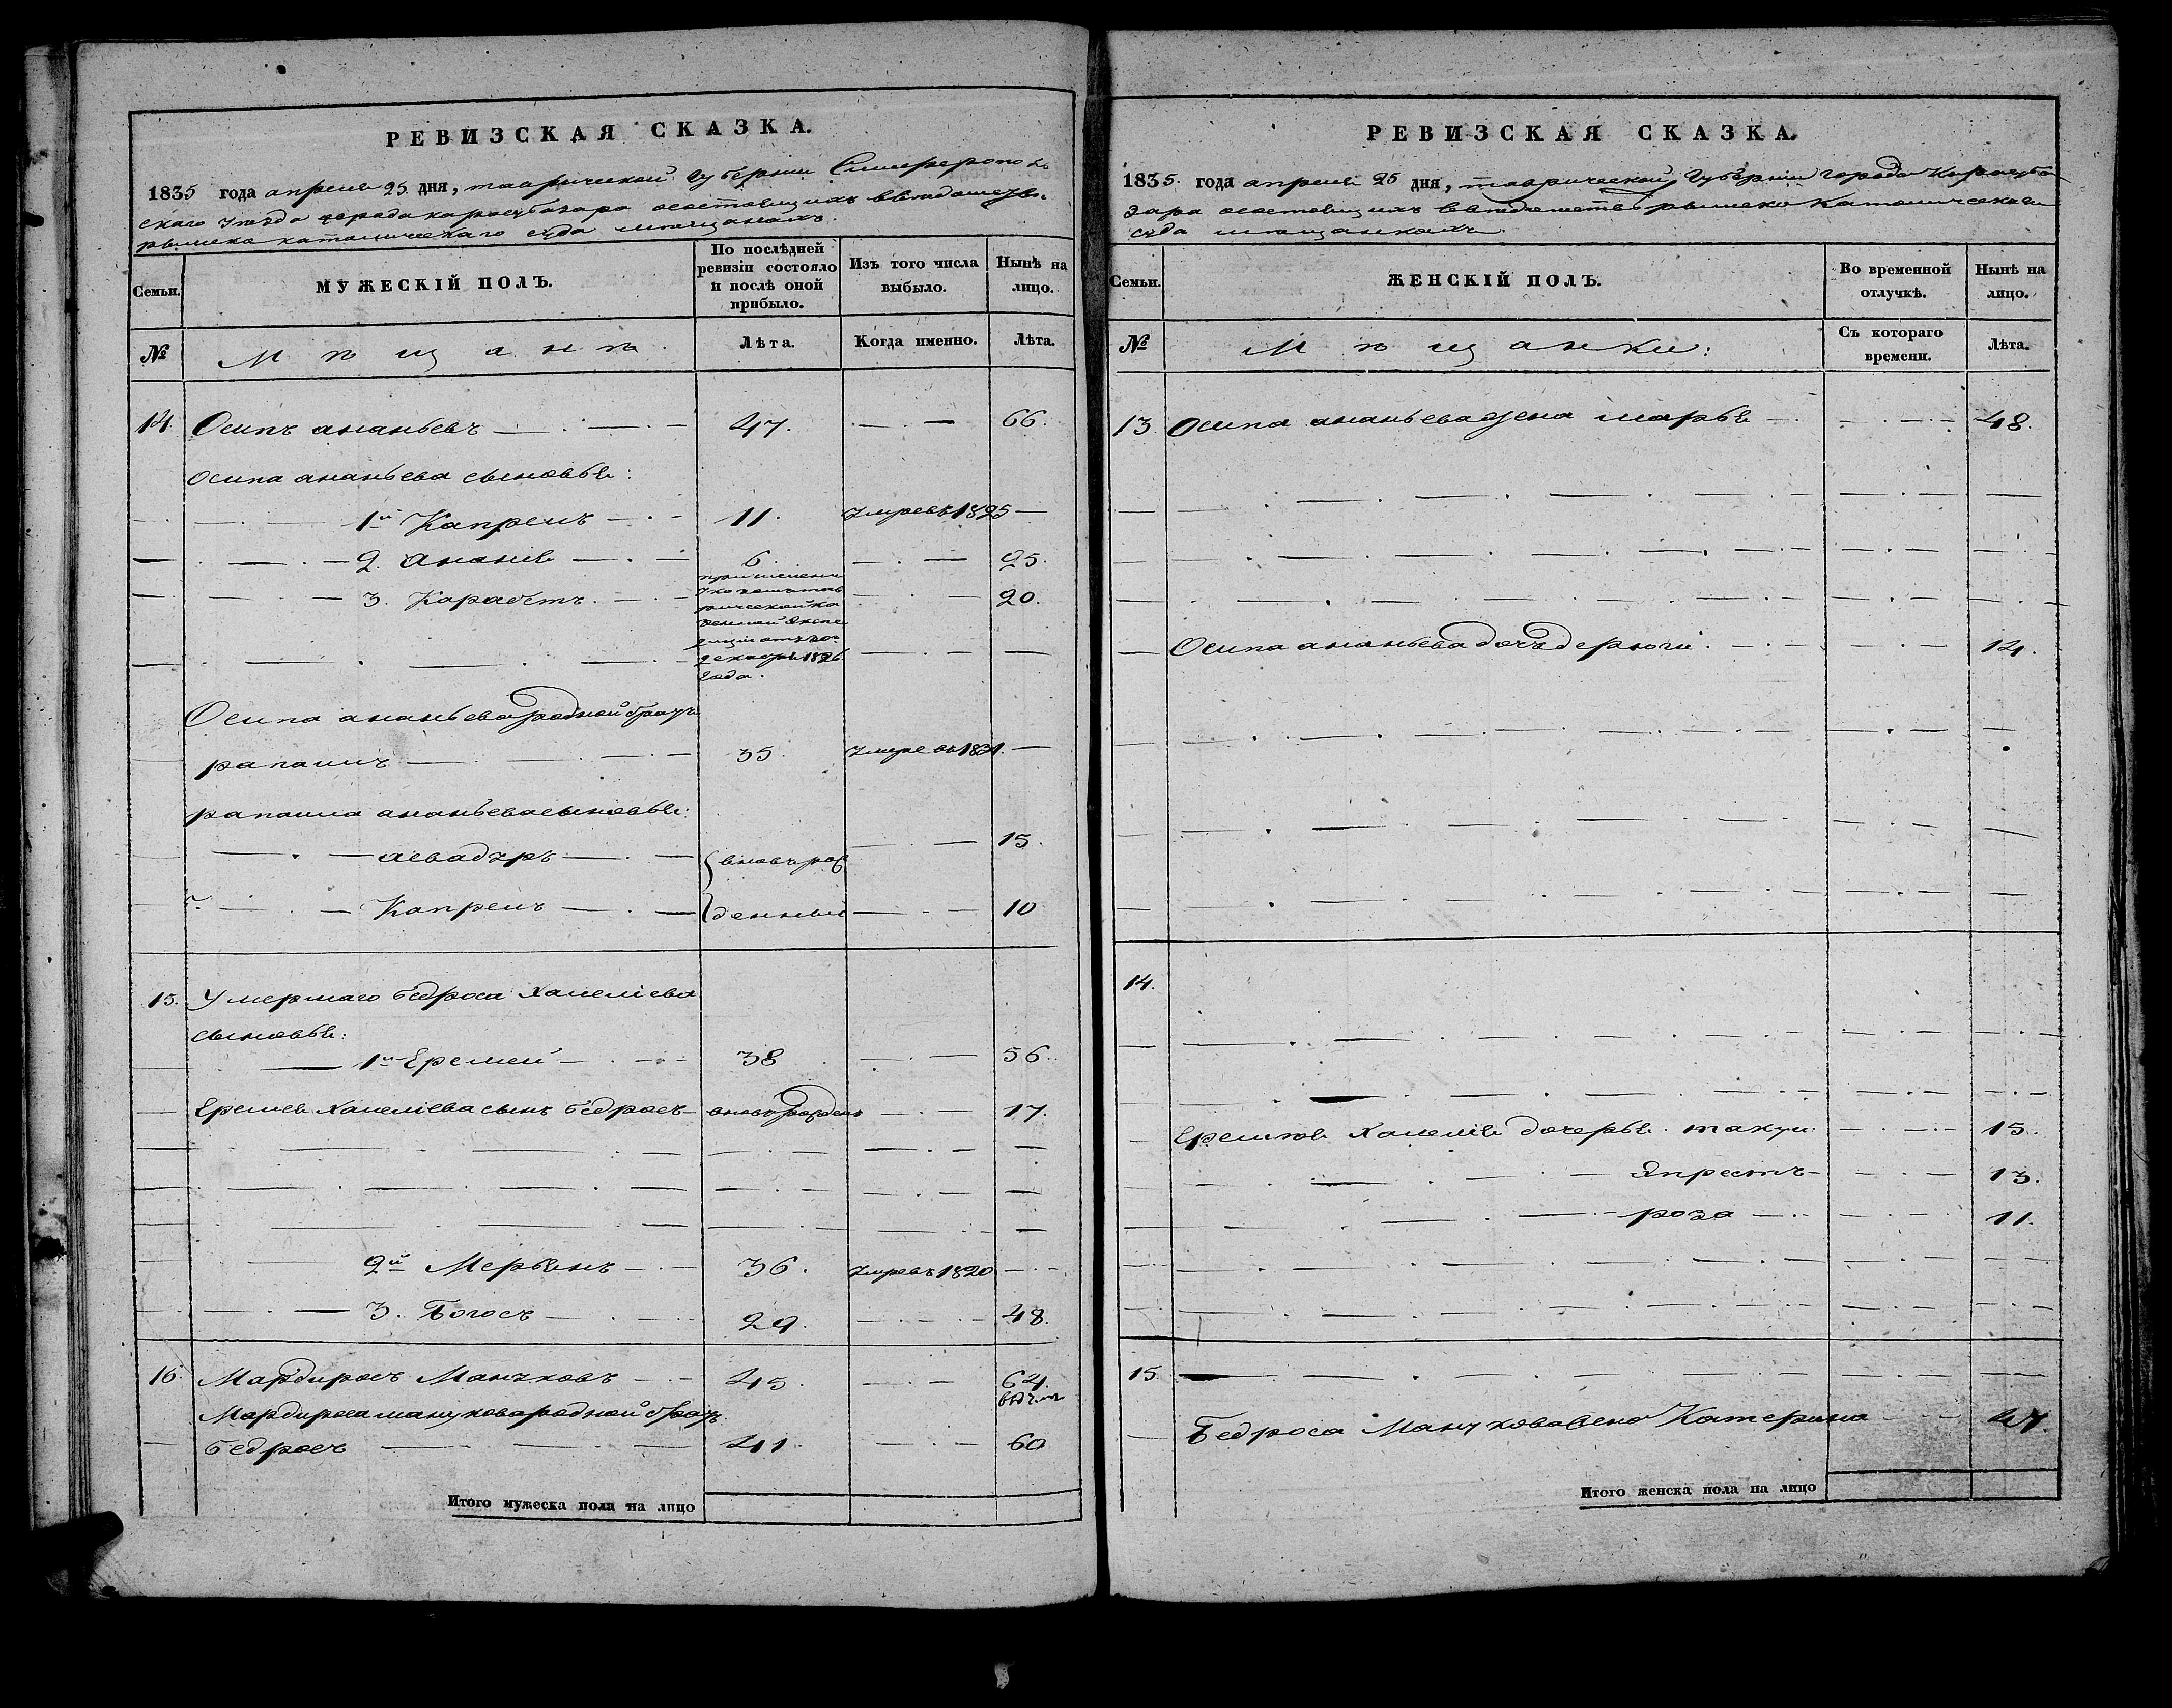 РЕВИЗСКАЯ СКАЗКА.
1835 года апреля 25 дня, таврической Губернии Симферополь
скаго уезда города карасубазара состоящихъ введомстве
рымско католическаго суда мещанахъ.
Семьи.
МУЖЕСКІЙ ПОЛЪ.
По послѣдней ревизіи состояло и послѣ оной прибыло.
Изъ того числа выбыло.
Нынѣ на лицо.
№
Мѣщанѣ
Лѣта.
Когда именно.
Лѣта.
14. Осипъ ананьевъ — 47. — 66.
Осипа ананьева сыновья:
1й Капрелъ — 11. умре въ 1825 —
2. ананiя — 6. — 25.
3. Карабетъ — 20.
декабря 1826
года.
Осипа ананьева родной братъ
рапаилъ — 35. умре въ 1831. —
рапаила ананьева сыновья:
асвадуръ — вновь рож — 15.
Капрелъ — денныи — 10
15. Умершаго бедроса Хамелiева
сыновья:
1й Еремей — 38 — 56.
Еремея Хамелiева сынъ бедросъ — вновь рожденъ — 17.
2й — 36. умре въ 1820 —
3. Богосъ — 29. — 48.
16. Мардиросъ Мануковъ — 45. — 64.
Мардироса манукова родной братъ
бедросъ — 41. — 60
Итого мужеска пола на лицо
РЕВИЗСКАЯ СКАЗКА.
1835. года апреля 25 дня, таврической Губернии города Карасуба
зара состоящихъ введомстве рымско католическаго
суда мещанкахъ
Семьи.
ЖЕНСКІЙ ПОЛЪ.
Во временной отлучкѣ.
Нынѣ на лицо.
№
Мѣщанки:
Съ котораго времени.
Лѣта.
13. Осипа ананьева жена марья — 48.
Осипа ананьева дочь — 14.
14.
Еремея Хамелiя дочерья. такун. — 15.
Япрестъ — 13.
роза — 11.
15.
Бедроса Манукова жена Катерина — 47.
Итого женска пола на лицо